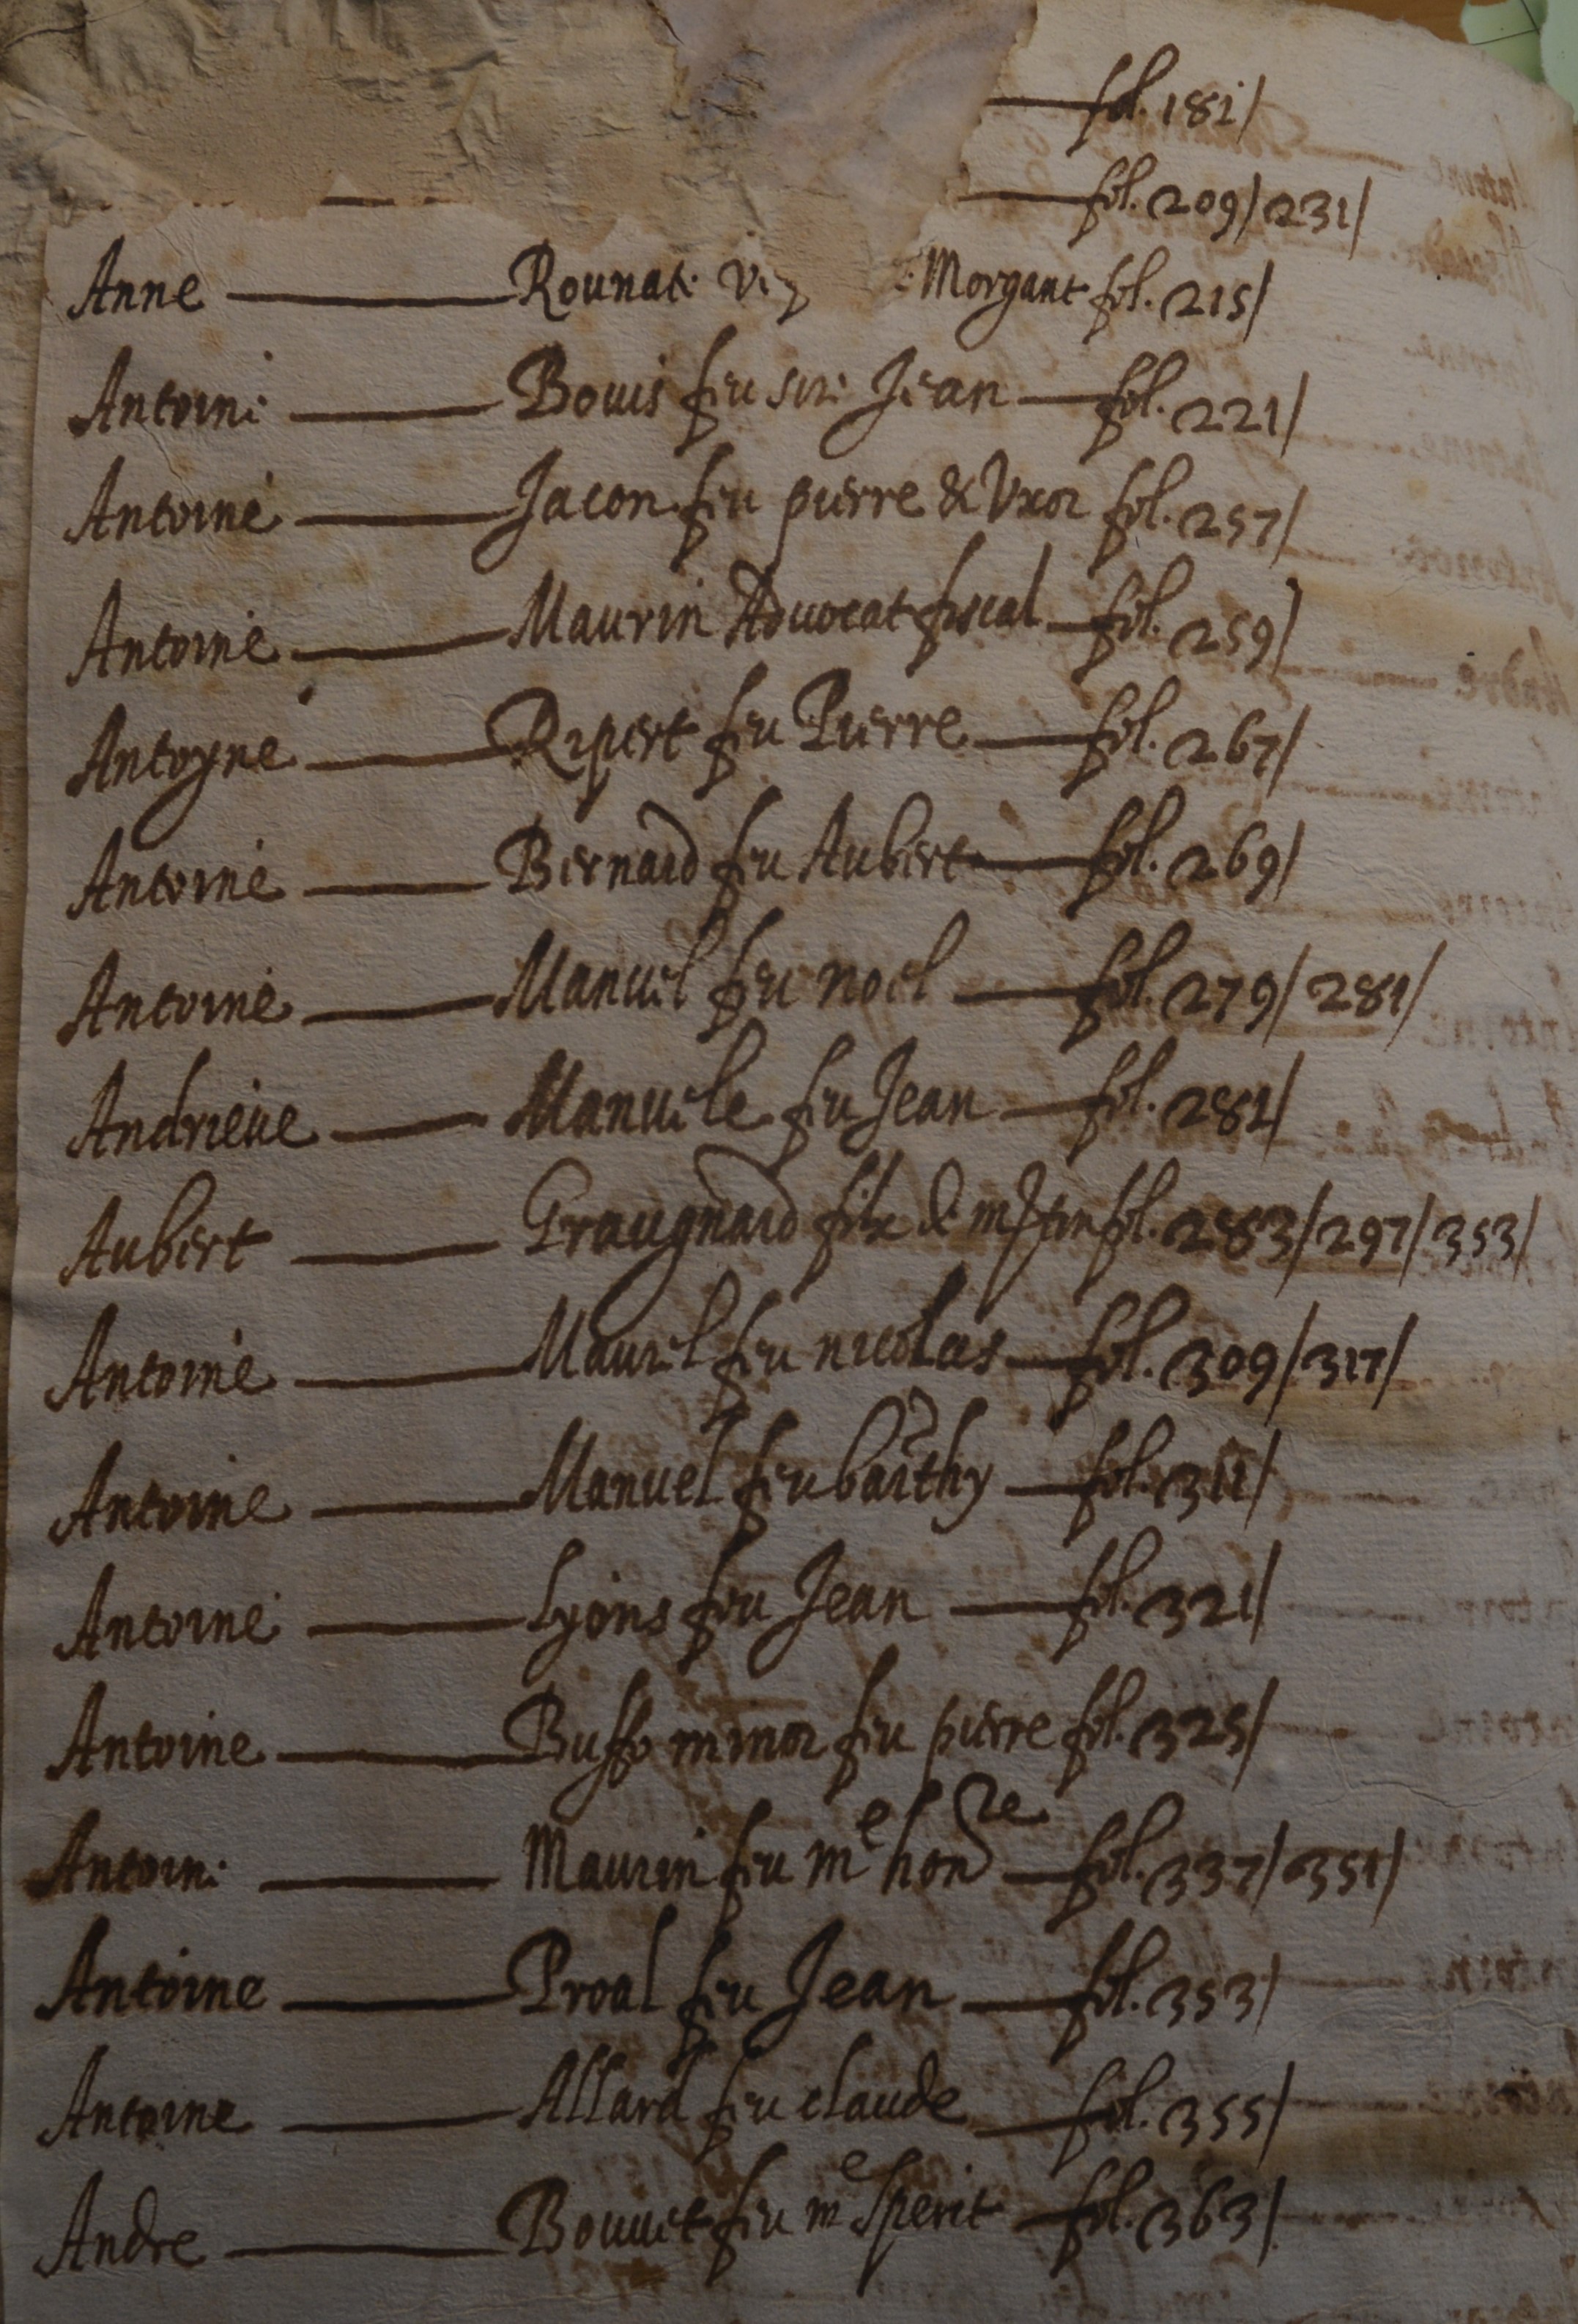 fol. 181/
fol. 209/231/
Anne Rounat Morgant fol. 215/
Antoine Bouis feu sire Jean fol. 221/
Antoine Jacon feu pierre & Vxor fol. 257/
Antoine Maurin Advocat fiscal fol. 259/
Antoyne Ripert feu Pierre fol. 267/
Antoine Bernard feu Aubert fol. 269/
Antoine Manuel feu noel fol. 279/281/
Andrieue Manuele feu Jean fol. 281/
Aubert Graugnard filz de fol. 283/297/353/
Antoine Maurel feu nicolas fol. 309/317/
Antoine Manuel feu barthy fol. 311/
Antoine Lyons feu Jean fol. 321/
Antoine Buffo minor feu pierre fol. 325/
Antoine Maurin feu me honre fol. 337/351/
Antoine Proal feu Jean fol. 353/
Antoine Allard feu claude fol. 355/
Andre Bouuet feu me Sperit fol. 363/